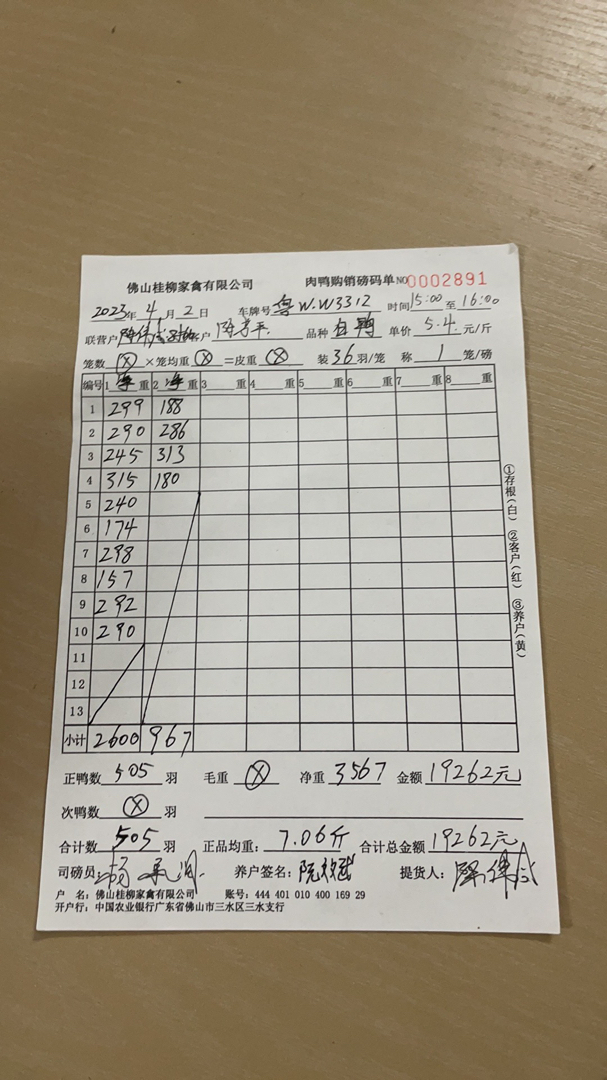 佛山桂柳家禽有限公司 肉鸭购销磅码单 NO 0002891
2023年4月2日 车牌号 粤W.W3312 时间 15:00 至 16:00
联营户 客户 品种 白鸭 单价 5.4 元/斤
笼数 ⓧ ×笼均重 ⓧ =皮重 ⓧ 装 36 羽/笼 称 1 笼/磅
编号 1 净 重 2 净 重 3 重 4 重 5 重 6 重 7 重 8 重
1 299 188
2 290 286
3 245 313
4 315 180
5 240
6 174
7 298
8 157
9 292
10 290
11
12
13
小计 2600 967
①存根(白) ②客户(红) ③养户(黄)
正鸭数 505 羽 毛重 ⓧ 净重 3567 金额 19262元
次鸭数 ⓧ 羽
合计数 505 羽 正品均重: 7.06斤 合计总金额 19262元
司磅员: 养户签名: 提货人:
户 名: 佛山桂柳家禽有限公司 账号: 444 401 010 400 169 29
开户行: 中国农业银行广东省佛山市三水区三水支行